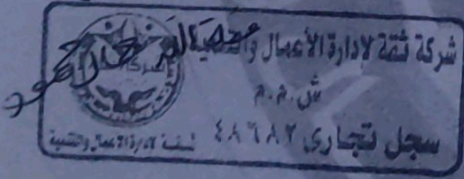 شركة ثقة لإدارة الأعمال والتنمية
ش.م.م
سجل تجارى ٤٨٦٨٢
ثقة لإدارة الأعمال والتنمية